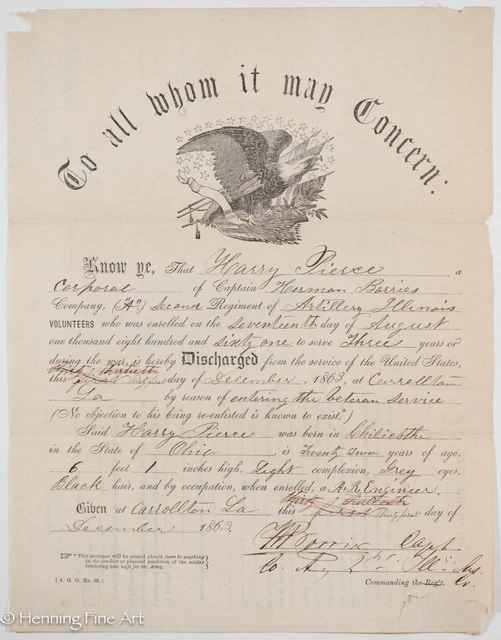 To all whom it may Concern:
Know ye, That Harry Pierce a
Corporal of Captain Herman Borries
Company, (A") Second Regiment of Artillery Illinois
VOLUNTEERS who was enrolled on the Seventeenth day of August
one thousand eight hundred and sixty one to serve Three years or
during the war, is hereby Discharged from the service of the United States,
this day of December, 1863, at Carrollton
La by reason of entering the Veteran Service
(No objection to his being re-enlisted is known to exist.*)
Said Harry Pierce was born in Chilicothe
in the State of Ohio is Twenty Two years of age,
6 feet 1 inches high, Light complexion, Grey eyes,
Black hair, and by occupation, when enrolled, a R.R. Engineer.
Given at Carrollton La this Thirty first day of
December 1863.
Borris Capt
Co. A, 2nd Ills
☞ * This sentence will be erased should there be anything
in the conduct or physical condition of the soldier
rendering him unfit for the Army.
[A. G. O. No. 99.] Commanding the Reg't. Co.
- Henning Fine Art